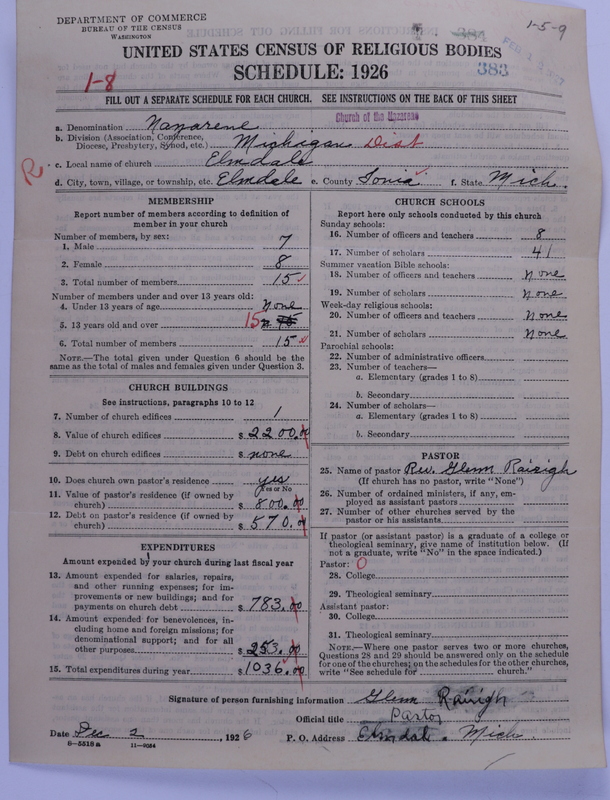 DEPARTMENT OF COMMERCE
BUREAU OF THE CENSUS
WASHINGTON
1-5-9
384
383
UNITED STATES CENSUS OF RELIGIOUS BODIES
SCHEDULE: 1926
1-8
FILL OUT A SEPARATE SCHEDULE FOR EACH CHURCH. SEE INSTRUCTIONS ON THE BACK OF THIS SHEET
Church of the Nazarene
a. Denomination Nazarene
b. Division (Association, Conference, Diocese, Presbytery, Synod, etc.) Michigan Dist
R
c. Local name of church Elmdale
d. City, town, village, or township, etc. Elmdale e. County Ionia f. State Mich.
MEMBERSHIP
Report number of members according to definition of
member in your church
Number of members, by sex:
1. Male 7
2. Female 8
3. Total number of members 15
Number of members under and over 13 years old:
4. Under 13 years of age none
5. 13 years old and over 15
6. Total number of members 15
NOTE.—The total given under Question 6 should be
same as the total of males and females given under Question 3.
CHURCH BUILDINGS
See instructions, paragraphs 10 to 12
7. Number of church edifices 1
8. Value of church edifices $ 2200.00
9. Debt on church edifices $ none
10. Does church own pastor's residence yes
Yes or No
11. Value of pastor's residence (if owned by
church) $ 800.00
12. Debt on pastor's residence (if owned by
church) $ 570.00
EXPENDITURES
Amount expended by your church during last fiscal year
13. Amount expended for salaries, repairs,
and other running expenses; for im-
provements or new buildings; and for
payments on church debt $ 783.00
14. Amount expended for benevolences, in-
cluding home and foreign missions; for
denominational support; and for all
other purposes $ 253.00
15. Total expenditures during year $ 1036.00
CHURCH SCHOOLS
Report here only schools conducted by this church
Sunday schools:
16. Number of officers and teachers 8
17. Number of scholars 41
Summer vacation Bible schools:
18. Number of officers and teachers none
19. Number of scholars none
Week-day religious schools:
20. Number of officers and teachers none
21. Number of scholars none
Parochial schools:
22. Number of administrative officers
23. Number of teachers—
a. Elementary (grades 1 to 8)
b. Secondary
24. Number of scholars—
a. Elementary (grades 1 to 8)
b. Secondary
PASTOR
25. Name of pastor Rev. Glenn Raisigh
(If church has no pastor, write "None")
26. Number of ordained ministers, if any, em-
ployed as assistant pastors
27. Number of other churches served by the
pastor or his assistants
If pastor (or assistant pastor) is a graduate of a college or
theological seminary, give name of institution below. (If
not a graduate, write "No" in the space indicated.)
Pastor: O
28. College
29. Theological seminary
Assistant pastor:
30. College
31. Theological seminary
NOTE.—Where one pastor serves two or more churches,
Questions 28 and 29 should be answered only on the schedule
for one of the churches; on the schedules for the other churches,
write "See schedule for church."
Signature of person furnishing information Glenn Raisigh
Official title Pastor
Date Dec 2, 1926 P. O. Address Elmdale. Mich.
8-5518 a 11-9054